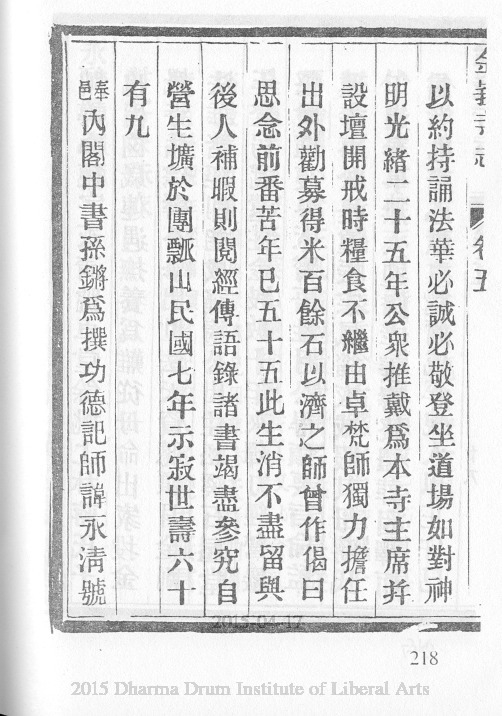 以約持誦法華必誠必敬登坐道場如對神
明光緒二十五年公衆推戴爲本寺主席幷
設壇開戒時糧食不繼由卓梵師獨力擔任
出外勸募得米百餘石以濟之師曾作偈曰
思念前番苦年已五十五此生消不盡留與
後人補暇則閱經傳語錄諸書竭盡參究自
營生壙於團瓢山民國七年示寂世壽六十
有九
奉邑內閣中書孫鏘爲撰功德記師諱永淸號
218
2015-04-17
2015 Dharma Drum Institute of Liberal Arts